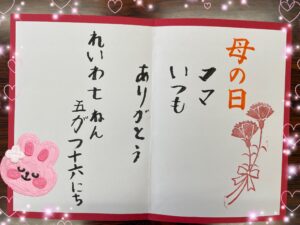 母の日
ママ
いつも
ありがとう
れいわ七ねん
五がつ十六にち